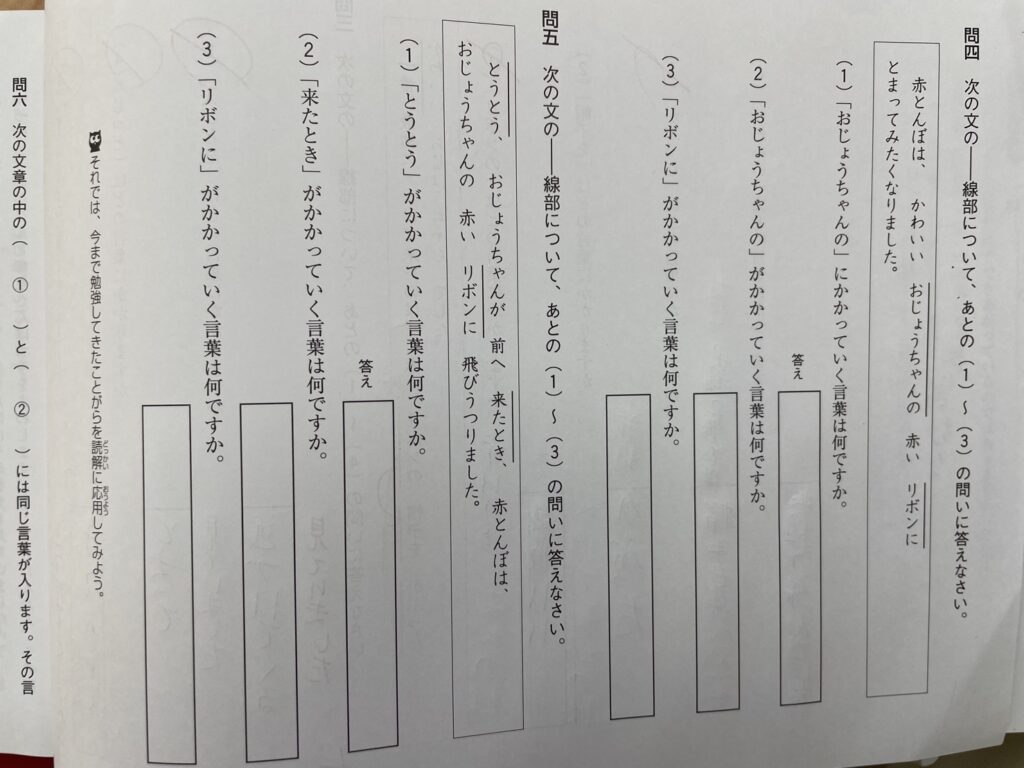 問四 次の文の――線部について、あとの(1)~(3)の問いに答えなさい。
赤とんぼは、 かわいい おじょうちゃんの 赤い リボンに
とまってみたくなりました。
(1)「おじょうちゃんの」にかかっていく言葉は何ですか。
答え
(2)「おじょうちゃんの」がかかっていく言葉は何ですか。
(3)「リボンに」がかかっていく言葉は何ですか。
問五 次の文の――線部について、あとの(1)~(3)の問いに答えなさい。
とうとう、 おじょうちゃんが 前へ 来たとき、 赤とんぼは、
おじょうちゃんの 赤い リボンに 飛びうつりました。
(1)「とうとう」がかかっていく言葉は何ですか。
答え
(2)「来たとき」がかかっていく言葉は何ですか。
(3)「リボンに」がかかっていく言葉は何ですか。
それでは、今まで勉強してきたことがらを読解に応用してみよう。
どっかい
おうよう
問六 次の文章の中の( ① )と( ② )には同じ言葉が入ります。その言